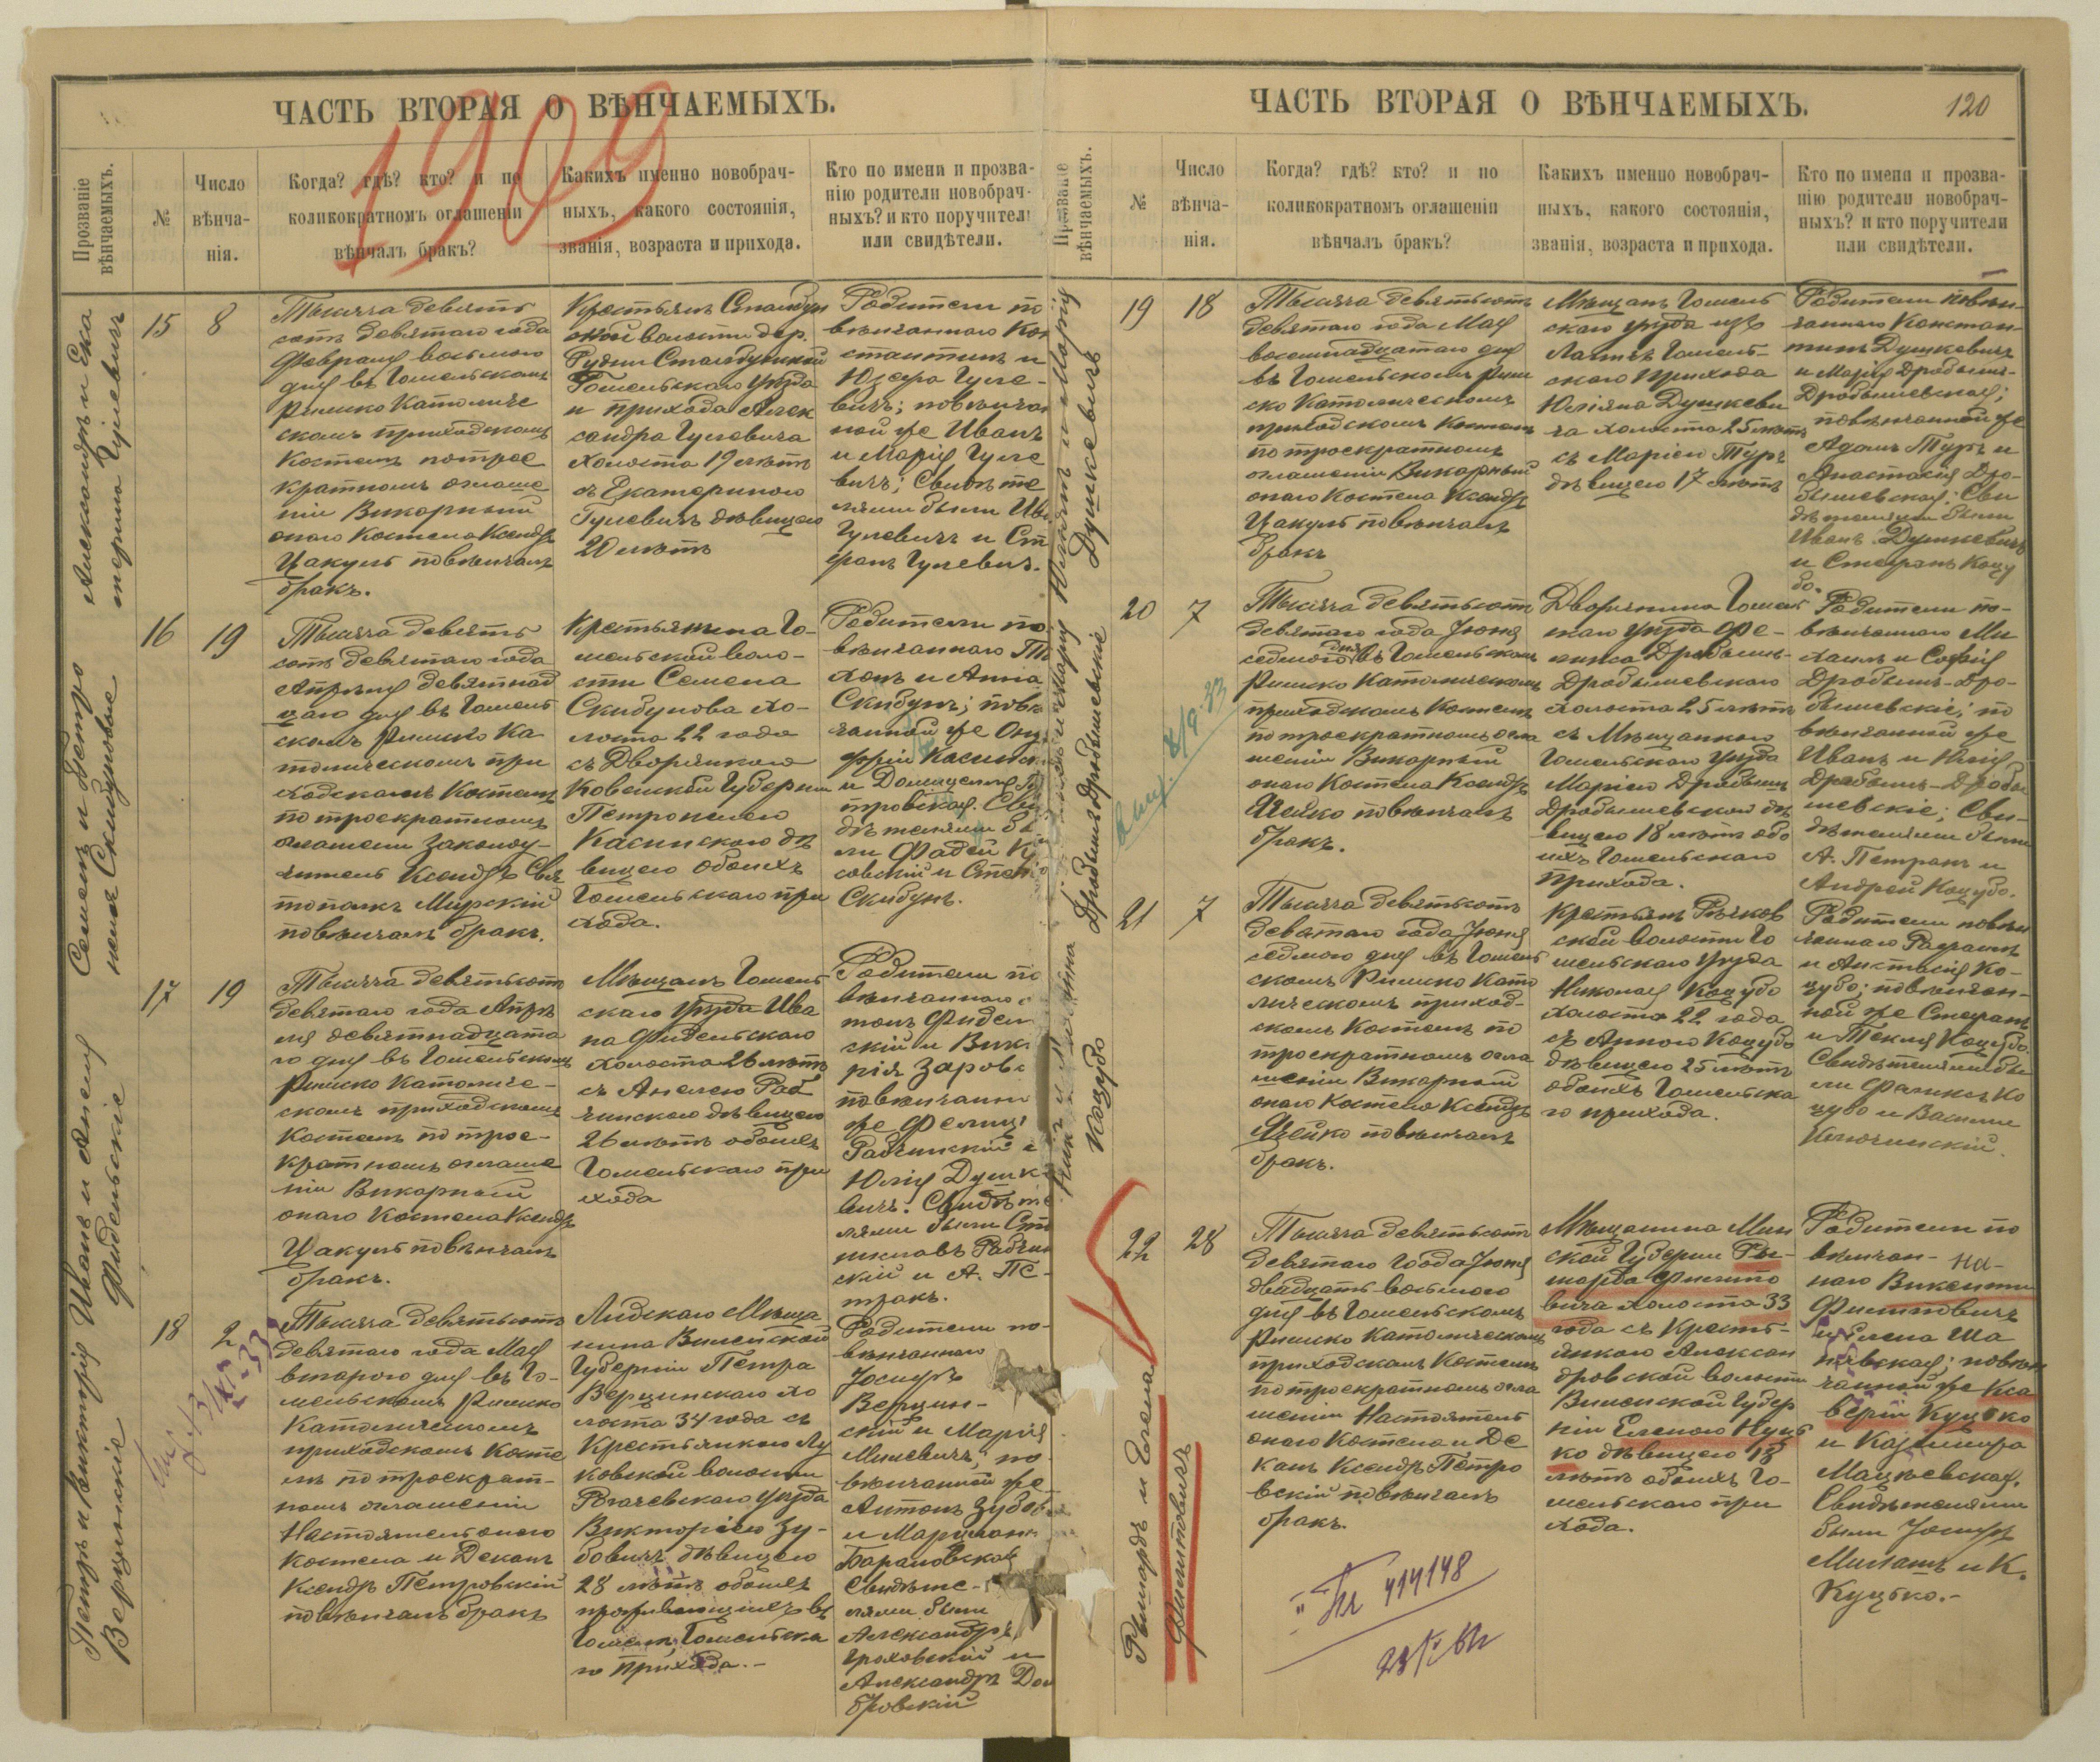 ЧАСТЬ ВТОРАЯ О ВѢНЧАЕМЫХЪ.
1909
Прозваніе вѣнчаемыхъ.
№
Число вѣнча-нія.
Когда? гдѣ? кто? и по
коликократномъ оглашеніи
вѣнчалъ бракъ?
Какихъ именно новобрач-
ныхъ, какого состоянія,
званія, возраста и прихода.
Кто по имени и прозва-
нію родители новобрач-
ныхъ? и кто поручител
или свидѣтели.
Александръ и Ека
терина Гулевичъ
15
8
Тысяча девять
сотъ девятаго года
Февраля восьмого
дня въ Гомельскомъ
Римско Католиче
скомъ приходскомъ
Костелѣ по трое
кратномъ оглаше
ніи Викарный
онаго Костела Ксендзъ
Цакулъ повѣнчалъ
бракъ.
дер.
Гомельскаго уѣзда
и прихода Алек
сандра Гулевича
холоста 19 лѣтъ
съ Екатериною
Гулевичъ дѣвицею
20 лѣтъ
Родители по
вѣнчаннаго Кон
стантинъ и
Юзефа Гуле-
вичъ; повѣнчан
ной же Иванъ
и Марія Гуле
вичъ; Свидѣте
лями были Ив
Гулевичъ и Ст
фанъ Гулевич.
Семенъ и Петро
неля Скидуновые
16
19
Тысяча девять
сотъ девятаго года
Апрѣля девятнад
цаго дня въ Гомель
скомъ Римско Ка
толическомъ при
ходскомъ Костелѣ
по троекратномъ
оглашеніи Законоу-
читель Ксендзъ Свя
тополкъ Мирскій
повѣнчалъ бракъ.
Крестьянина Го-
мельской воло-
сти Семена
Скидунова хо-
лоста 22 года
съ Дворянкою
Ковенской Губерніи
Петронелею
Касинскою дѣ
вицею обоихъ
Гомельскаго при
хода.
Родители по
вѣнчаннаго Ти
хонъ и Анна
Скидунъ; повѣ
чанной же Ону
фрій Касинск
тровская. Сви
дѣтелями бы
ли Фадей К
совскій и Степ
Скидунъ.
Иванъ и Анеля
Фидельскіе
17
19
Тысяча девятьсотъ
девятаго года Апрѣ
ля девятнадцата
го дня въ Гомельскомъ
Римско Католиче-
скомъ приходскомъ
Костелѣ по трое-
кратномъ оглаше
ніи Викарный
онаго Костела Ксендзъ
Цакулъ повѣнчалъ
бракъ.
Мѣщанъ Гомель
скаго уѣзда Ива
на Фидельскаго
холоста 26 лѣтъ
съ Анелею Раб
чинскою дѣвицею
26 лѣтъ обоихъ
Гомельскаго при
хода
Родители по
вѣнчаннаго
тонъ Фидел
скій и Вик
рія Заров
повѣнчанн
же Фелиц
Рабчинскій
Юлія Душк
вичъ. Свидѣте
лями были Ста
ниславъ Рабчин
скій и А. Пе-
тракъ.
Петръ и Викторія
Верцинскіе
18
2
Тысяча девятьсотъ
девятаго года Мая
второго дня въ Го-
мельскомъ Римско
Католическомъ
приходскомъ Косте
лѣ по троекрат-
номъ оглашеніи
Настоятель онаго
Костела и Деканъ
Ксендзъ Петровскій
повѣнчалъ бракъ
Лидскаго Мѣща
нина Виленской
Губерніи Петра
Верцинскаго хо
лоста 34 года съ
Крестьянкою Лу
ковской волости
Рогачевскаго уѣзда
Викторіею Зу-
бовичъ дѣвицею
28 лѣтъ обоихъ
проживающихъ въ
Гомелѣ, Гомельска
го прихода.-
Родители по-
вѣнчаннаго
Іосифъ
Верцин-
скій и Марія
Милевичъ; по-
вѣнчанной же
Антонъ Зубов
и Марціанн
Барановская
Свидѣте-
лями были
Александръ
Гроховскій и
Александръ Дом
бровскій
ЧАСТЬ ВТОРАЯ О ВѢНЧАЕМЫХЪ.
120
Прозваніе вѣнчаемыхъ.
№
Число вѣнча-нія.
Когда? гдѣ? кто? и по
коликократномъ оглашеніи
вѣнчалъ бракъ?
Какихъ именно новобрач-
ныхъ, какого состоянія,
званія, возраста и прихода.
Кто по имени и прозва-
нію родители новобрач-
ныхъ? и кто поручители
или свидѣтели.
Юліанъ и Марія
Душкевичъ
19
18
Тысяча девятьсотъ
девятаго года Мая
восемнадцатаго дня
въ Гомельскомъ Рим
ско Католическомъ
приходскомъ Костелѣ
по троекратномъ
оглашеніи Викарный
онаго Костела Ксендзъ
Цакулъ повѣнчалъ
бракъ
Мѣщанъ Гомель
скаго уѣзда изъ
Гомель-
скаго прихода
Юліяна Душкеви
ча холоста 25 лѣтъ
съ Маріею Туръ
дѣвицею 17 лѣтъ
Родители повѣн-
чаннаго Констан-
тинъ Душкевичъ
и Марія Дробыш-
Дробышевская;
повѣнчанной же
Адамъ Туръ и
Анастасія Дро-
бышевская; Сви
дѣтелями были
Иванъ Душкевичъ
и Стефанъ Коцу
бо.
Дробышъ Дробышевскіе
20
7
Тысяча девятьсотъ
девятаго года Іюня
седмого дня въ Гомельскомъ
Римско Католическомъ
приходскомъ Костелѣ
по троекратномъ огла
шеніи Викарный
онаго Костела Ксендзъ
Ячейко повѣнчалъ
бракъ.
Дворянина Гомель
скаго уѣзда Фе-
ликса Дробышъ-
Дробышевскаго
холоста 25 лѣтъ
съ Мѣщанкою
Гомельскаго уѣзда
Маріею Дробышъ
Дробышевской дѣ
вицею 18 лѣтъ обо
ихъ Гомельскаго
прихода.
Родители по-
вѣнчаннаго Ми
хаилъ и Софія
Дробышъ-Дро-
бышевскіе; по
вѣнчанной же
Иванъ и Юлія
Дробышъ-Дробы
шевскіе; Сви-
дѣтелями были
А. Петракъ и
Андрей Коцубо.
Коцубо
21
7
Тысяча девятьсотъ
девятаго года Іюня
седмого дня въ Гомель
скомъ Римско Като
лическомъ приход-
скомъ Костелѣ по
троекратномъ огла
шеніи Викарный
онаго Костела Ксендзъ
Ячейко повѣнчалъ
бракъ.
Крестьянъ Рѣчков
ской волости Го
мельскаго уѣзда
Николая Коцубо
холоста 22 года
съ Анною Коцубо
дѣвицею 25 лѣтъ
обоихъ Гомельска
го прихода.
Родители повѣн
чаннаго Рафаилъ
и Анстасія Ко-
цубо; повѣнчан-
ной же Стефанъ
и Текля Коцубо.
Свидѣтелями бы
ли Феликсъ Ко
цубо и Василій
Ключинскій.
Рышардъ и Елена
Фиштовичъ
22
28
Тысяча девятьсотъ
девятаго года Іюня
двадцать восьмого
дня въ Гомельскомъ
Римско Католическомъ
приходскомъ Костелѣ
по троекратномъ огла
шеніи Настоятель
онаго Костела и Де
канъ Ксендзъ Петро
вскій повѣнчалъ
бракъ.
Мѣщанина Мин
ской Губерніи Ры-
шарда
вича холоста 33
года съ Кресть-
янкою Алексан
дровской волости
Виленской Губер
ніи Еленою Куць
ко дѣвицею 18
лѣтъ обоихъ Го-
мельскаго при
хода.
Родители по
вѣнчан-
наго Викентій
и Елена Ша
нявская; повѣн
чанной же Кса
верій Куцько
и Казимира
Мацѣевская.
Свидѣтелями
были Іосифъ
Милашъ и К.
Куцько.-
414148